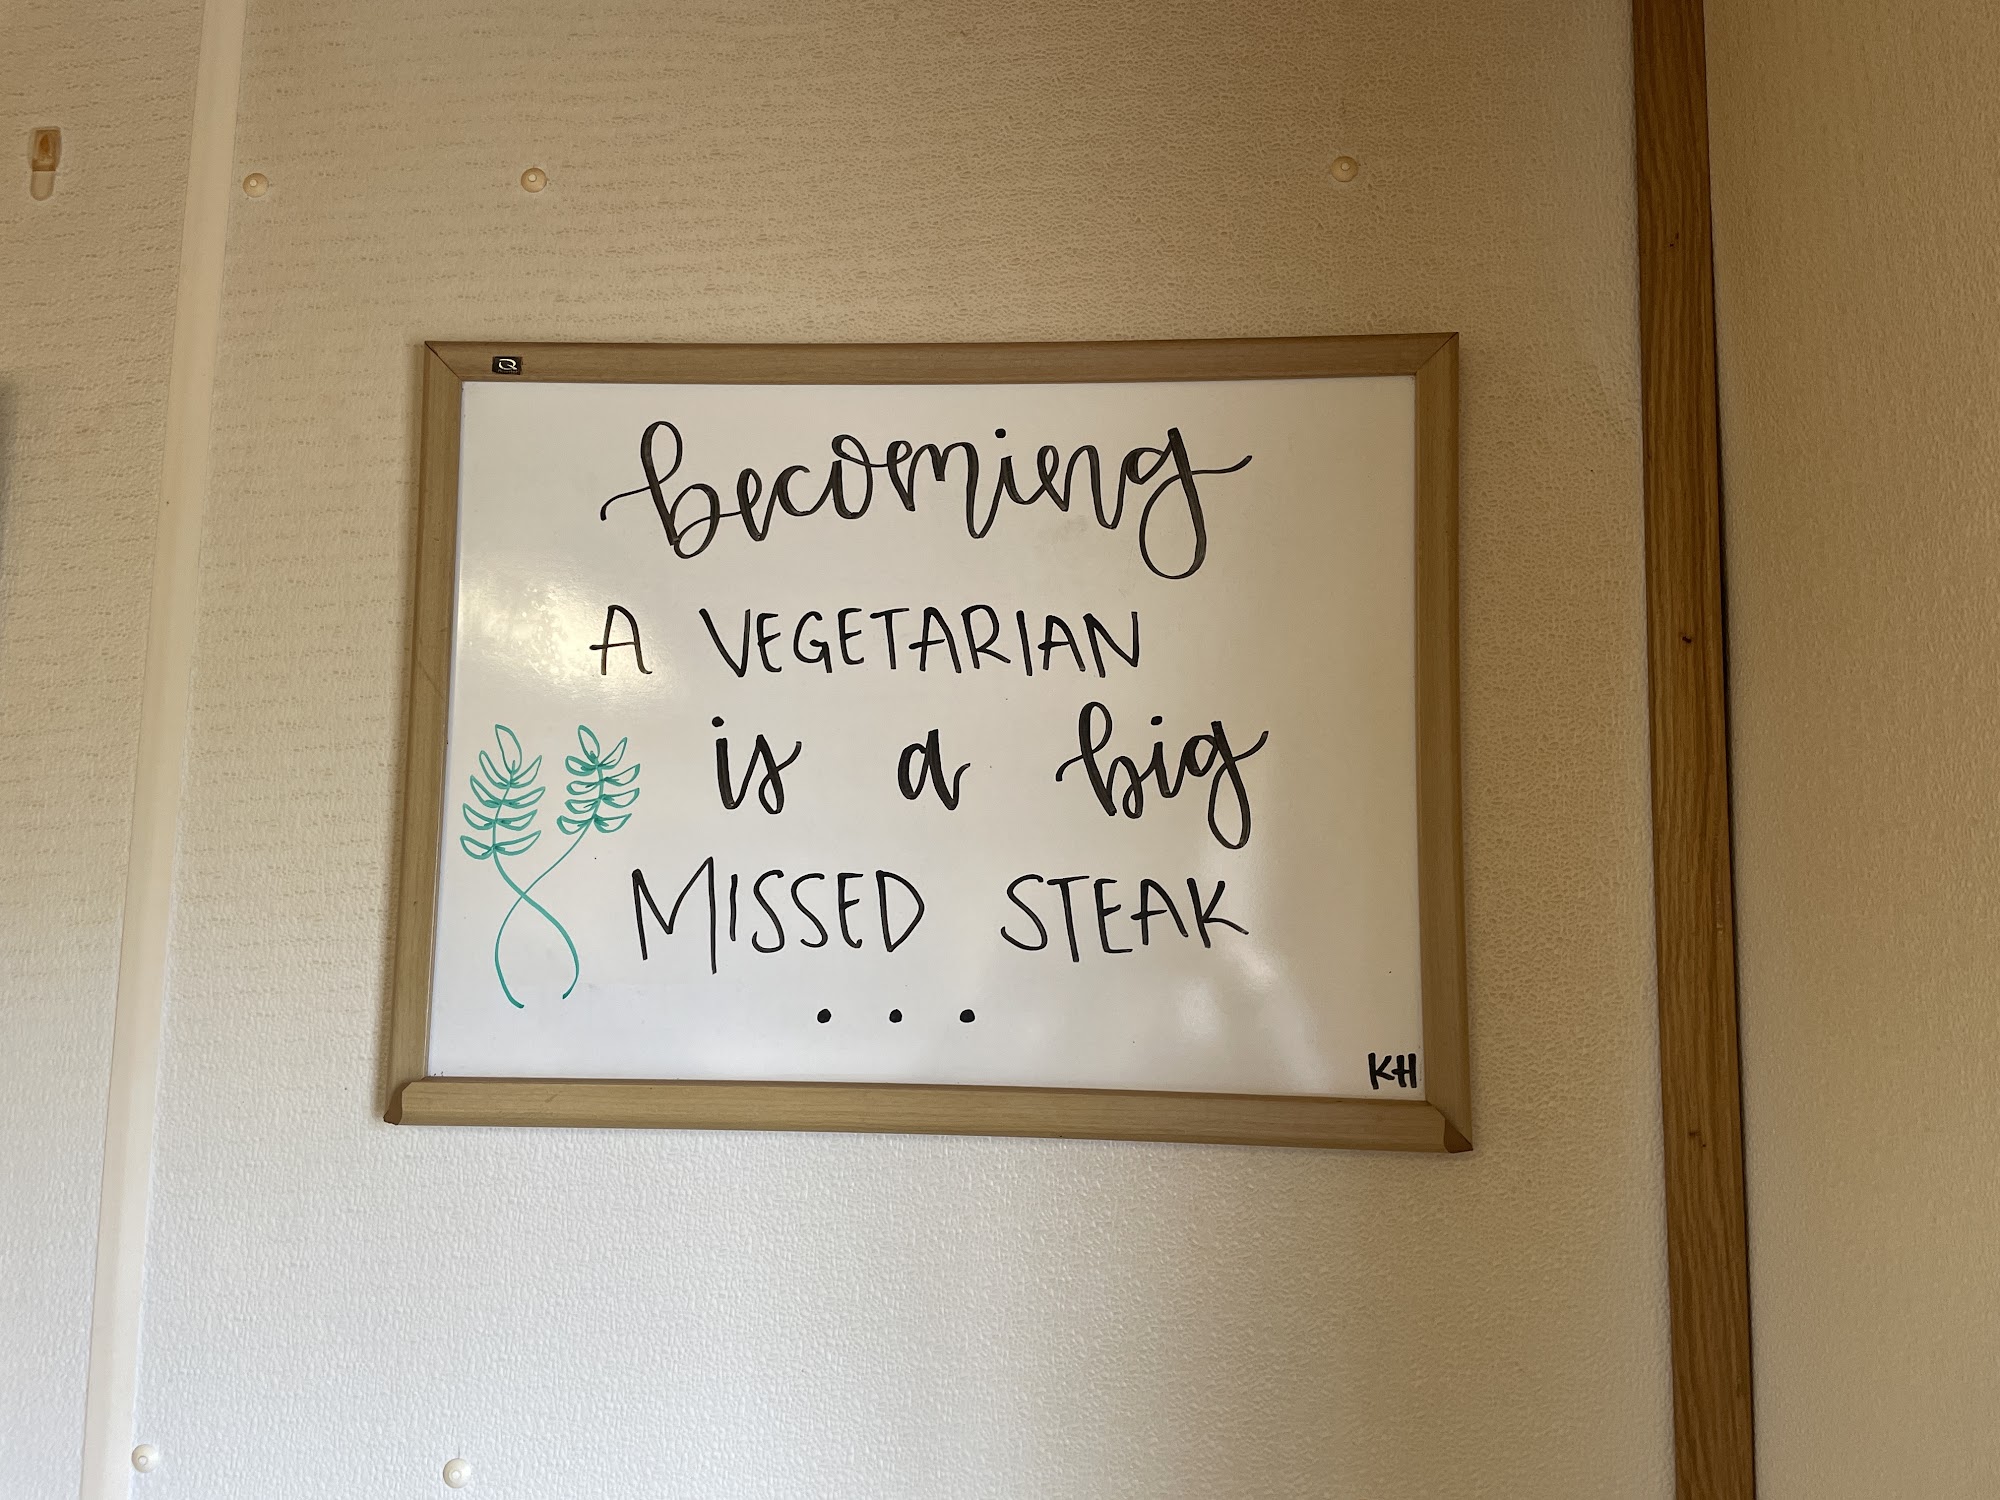 becoming
A VEGETARIAN
is a big
MISSED STEAK
...
KH